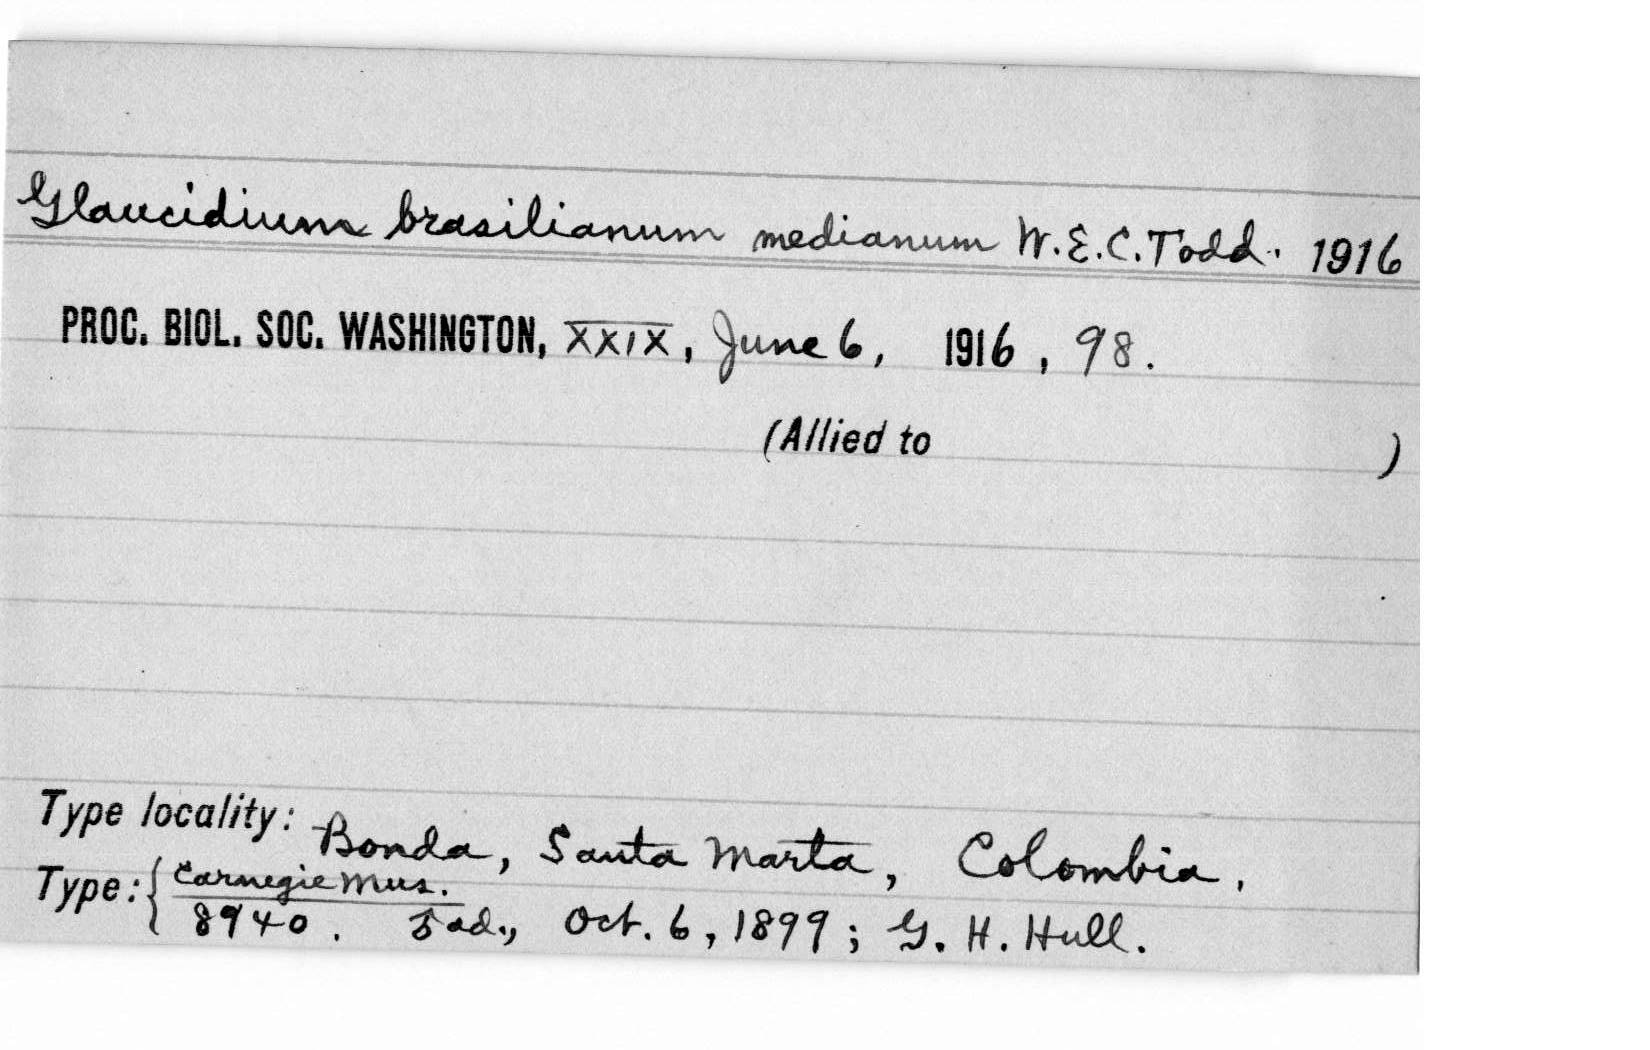 Glaucidium brasilianum medianum W.E.C. Todd. 1916
PROC. BIOL. SOC. WASHINGTON, XXIX, June 6, 1916, 98.
(Allied to )
Type locality: Bonda, Santa Marta, Colombia.
Type: { Carnegie Mus.
8940. ad., Oct. 6, 1899; G. H. Hull.